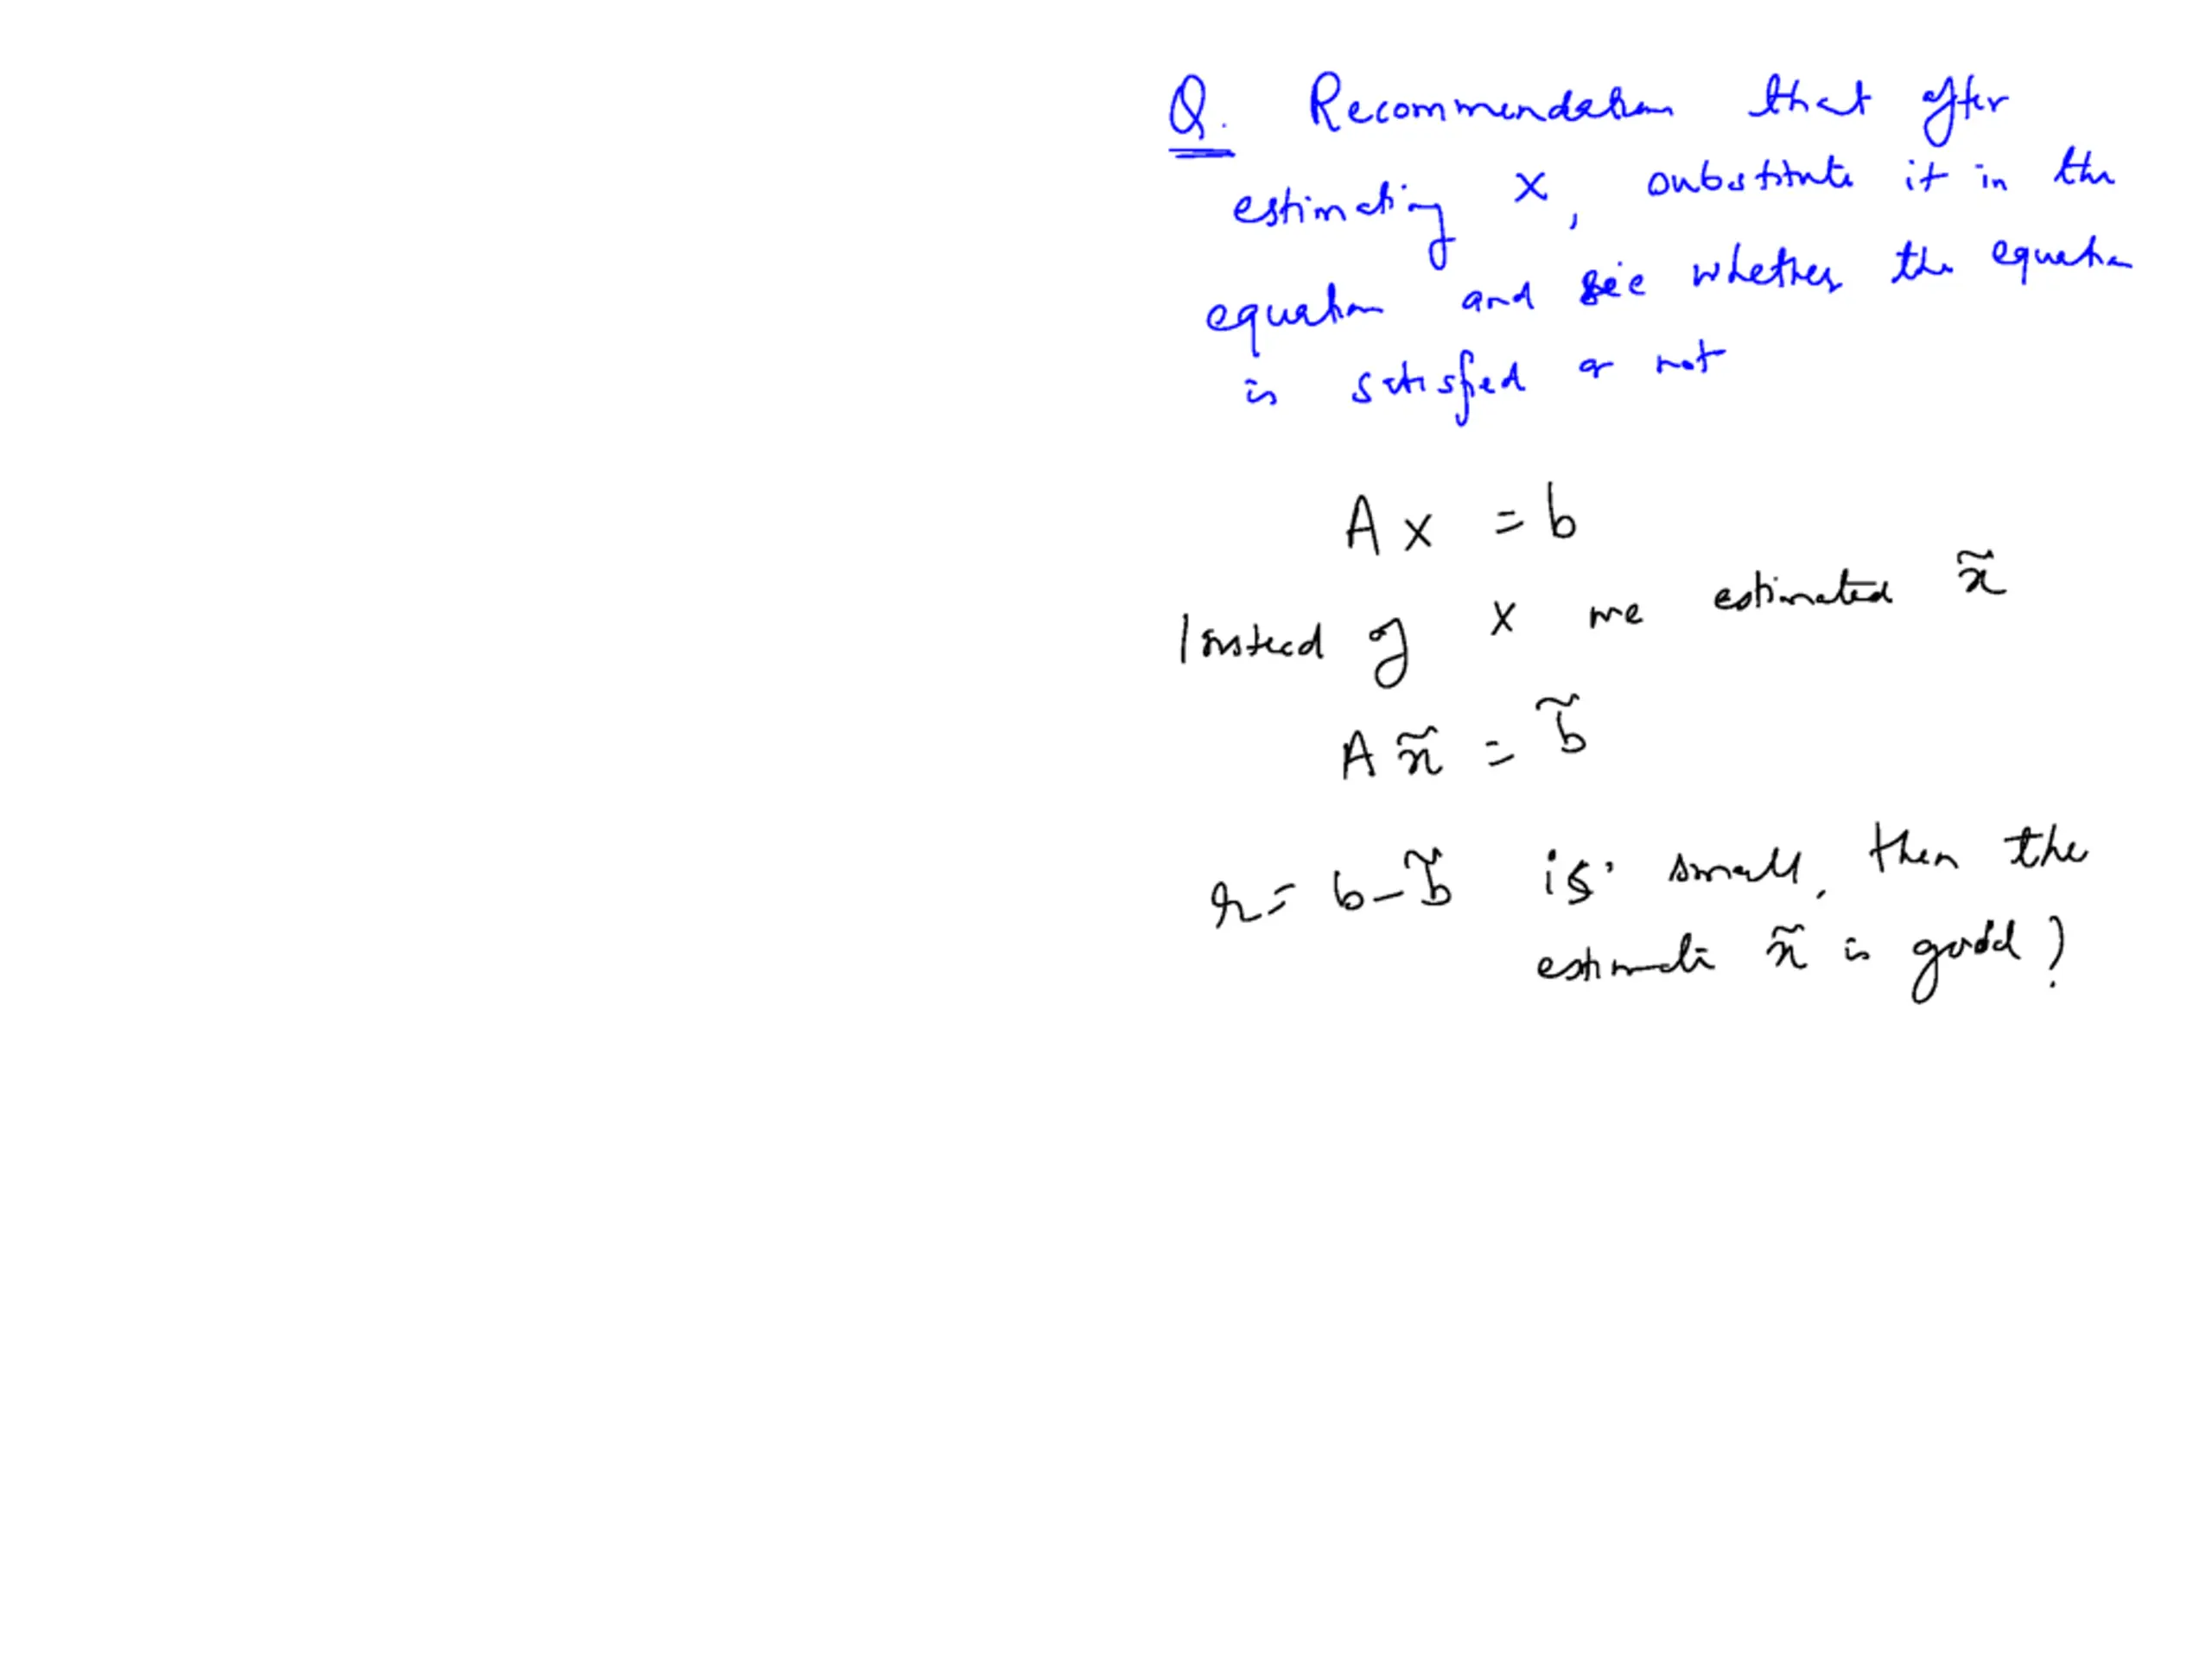 Q. Recommendation that after
estimating x, substitute it in the
equation and see whether the equation
is satisfied or not
Ax = b
Instead of x we estimated x̃
Ax̃ = b̃
r = b - b̃ is small, then the
estimate x̃ is good?